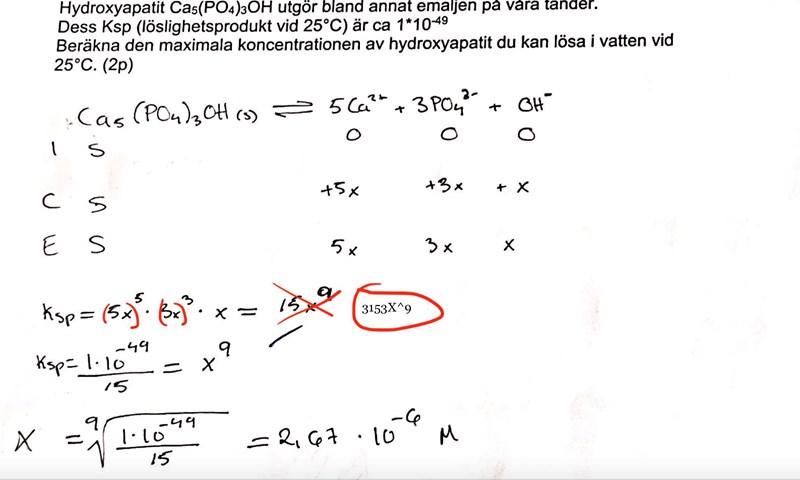 Hydroxyapatit Ca₅(PO₄)₃OH utgör bland annat emaljen på våra tänder.
Dess Ksp (löslighetsprodukt vid 25°C) är ca 1*10⁻⁴⁹
Beräkna den maximala koncentrationen av hydroxyapatit du kan lösa i vatten vid
25°C. (2p)
Ca₅(PO₄)₃OH (s) ⇌ 5Ca²⁺ + 3PO₄³⁻ + OH⁻
I S 0 0 0
C S +5x +3x + x
E S 5x 3x x
Ksp = (5x)⁵ · (3x)³ · x = 15x⁹ 3153X^9
Ksp = 1·10⁻⁴⁹/15 = x⁹
X = ⁹√(1·10⁻⁴⁹/15) = 2,67 · 10⁻⁶ M